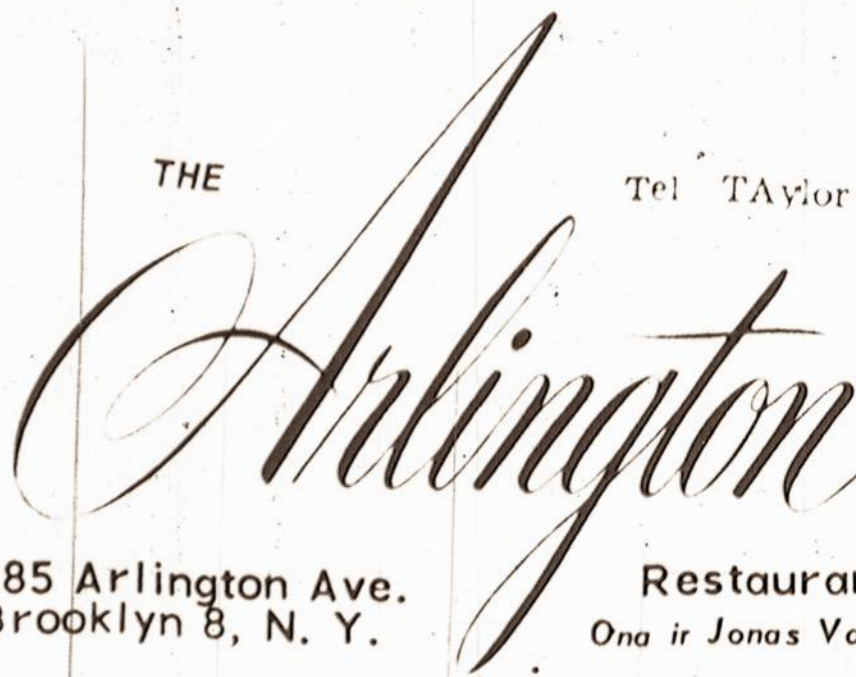 THE
Tel TAylor
Arlington
85 Arlington Ave.
Brooklyn 8, N. Y.
Restauran
Ona ir Jonas Va